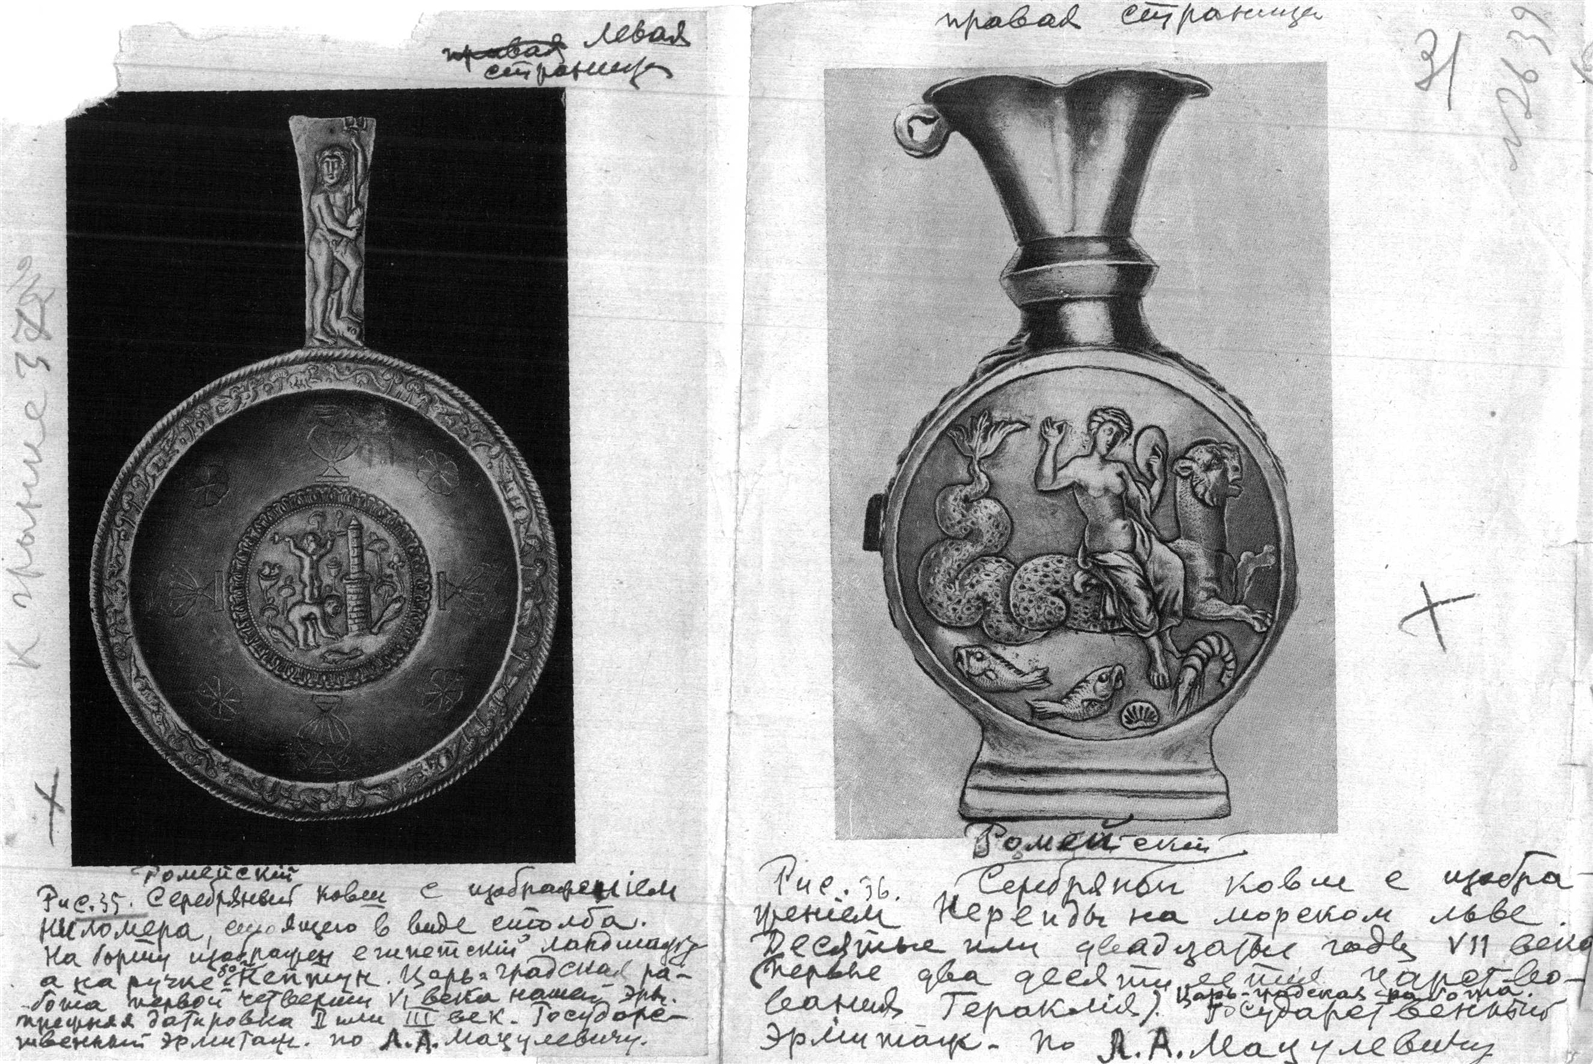 правая левая
страница
Ромейскій
Рис. 35. Серебряный ковш с изображеніем
ниломера, стоящего в виде столба.
На борту изображен египетскій ландшафт
а на ручке Нептун. Царь-градская ра-
бота первой четверти VI века нашей эры.
прежняя датировка II или III век. Государс-
твенный Эрмитаж. по Л.А. Мацулевичу.
К грыние 37
правая страница
31
№ 2639
Ромейскій
Рис. 36. Серебряный ковш с изобра-
женіем Нереиды на морском льве.
Десятые или двадцатые годы VII века
(первые два десятилетия царство-
вания Гераклія). Царь-градская работа.
Государственный
Эрмитаж. По Л.А. Мацулевичу